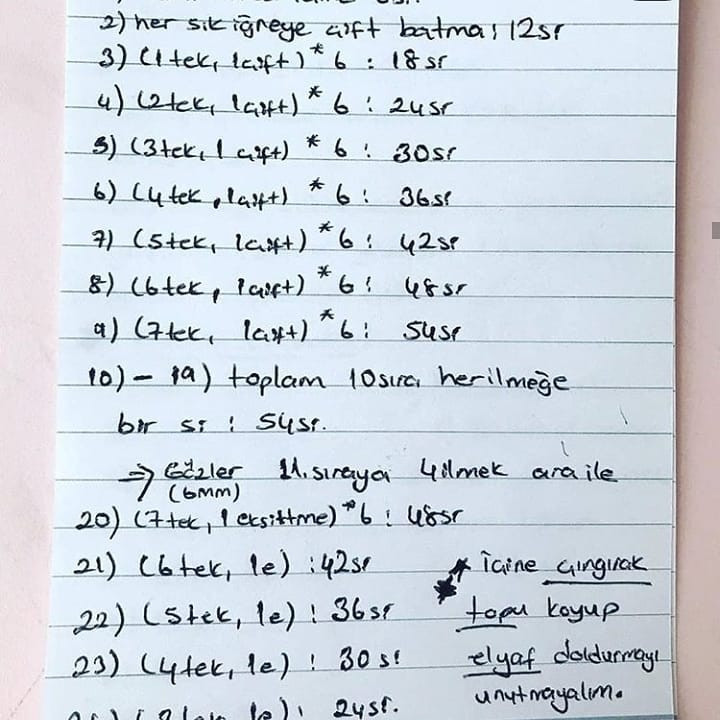 2) her sık iğneye çift batma : 12sr
3) (1tek, 1çift) * 6 : 18sr
4) (2tek, 1çift) * 6 : 24sr
5) (3tek, 1 çift) * 6 : 30sr
6) (4tek, 1çift) * 6 : 36sr
7) (5tek, 1çift) * 6 : 42sr
8) (6tek, 1çift) * 6 : 48sr
9) (7tek, 1çift) * 6 : 54sr
10) - 19) toplam 10sıra her ilmeğe
bir si : 54sr.
⇒ Gözler 11.sıraya 4ilmek ara ile
(6mm)
20) (7tek, 1 eksiltme) * 6 : 48sr
21) (6tek, 1e) : 42sr
22) (5tek, 1e) : 36sr
23) (4tek, 1e) : 30sr
1e) : 24sr.
* İçine çıngırak
* topu koyup
elyaf doldurmayı
unutmayalım.